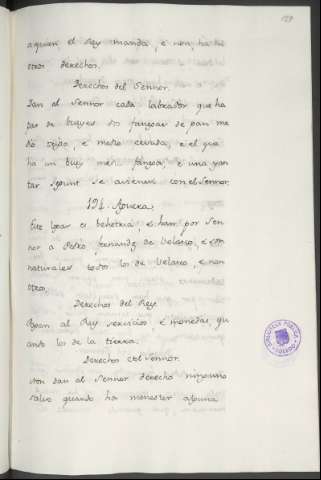 a quien el Rey manda, e non, ha hi
otros derechos.
Derechos del Sennor.
Dan al Sennor cada labrador que ha
par de bueyes dos fanegas de pan me
dio trigo, e medio cevada, e el que
ha un buey media fanega, e una yan
tar segunt se avienen con el Sennor.
124. Aguera.
Este logar es behetria e han por Sen
nor a Pedro Fernandez de Velasco, e con
naturales todos los de Velasco, e non
otros,
Derechos del Rey.
Pagan al Rey servicios e monedas, qu
ando los de la tierra.
Derechos del Sennor.
Non dan al Sennor derecho ninguno
salvo quando ha menester alguna
BIBLIOTECA PUBLICA
TOLEDO